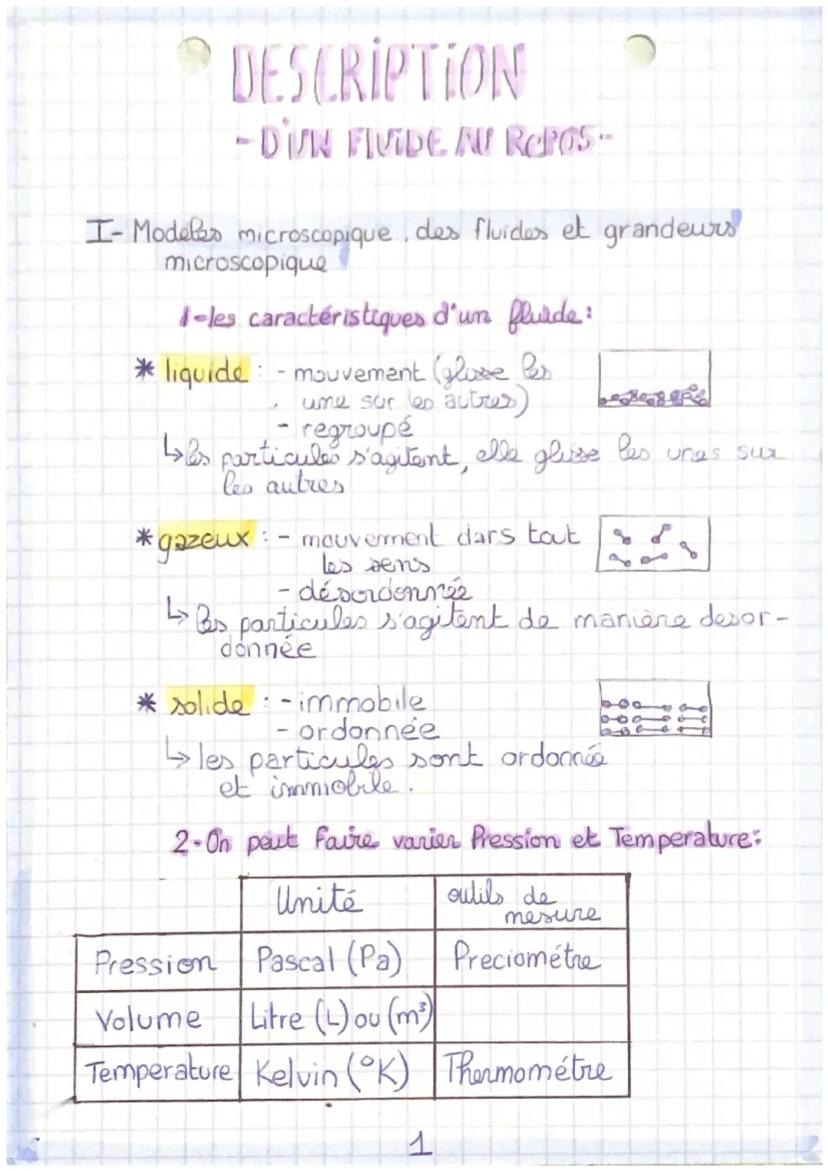 DESCRIPTION
- D'UN FLUIDE AU REPOS -
I- Modeles microscopique des fluides et grandeurs
microscopique
1-les caractéristiques d'un fluide:
* liquide : - mouvement (glisse les
une sur les autres)
- regroupé
↳ les particules s'agitent, elle glisse les unes sur
les autres
* gazeux : - mouvement dans tout
les sens
- désordonnée
↳ les particules s'agitent de manière desor-
donnée
* solide : - immobile
- ordonnée
↳ les particules sont ordonnée
et immobile.
2-On peut faire varier Pression et Temperature:
Unité outils de
mesure
Pression Pascal (Pa) Preciométre
Volume Litre (L) ou (m³)
Temperature Kelvin (°K) Thermométre
1